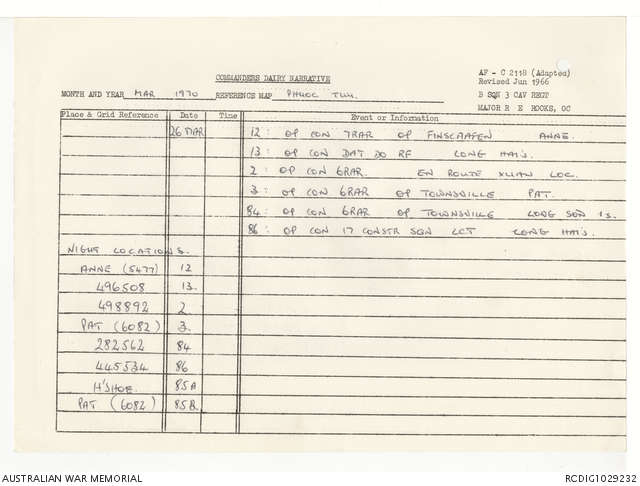 COMMANDERS DAIRY NARRATIVE
AF - C 2118 (Adapted)
Revised Jun 1966
MONTH AND YEAR MAR 1970 REFERENCE MAP PHUOC TUY.
B SQN 3 CAV REGT
MAJOR R E ROOKS, OC
Place & Grid Reference Date Time Event or Information
26 MAR 12: OP CON 7RAR OP FINSCHAFEN ANNE.
13: OP CON DAT DO RF LONG HAI'S.
2: OP CON 6RAR. EN ROUTE XUAN LOC.
3: OP CON 6RAR OP TOWNSVILLE PAT.
84: OP CON 6RAR OP TOWNSVILLE LONG SON IS.
86: OP CON 17 CONSTR SQN LCT LONG HAI'S.
NIGHT LOCATIONS.
ANNE (5477) 12
496508 13.
498892 2
PAT (6082) 3.
282562 84
445534 86
H'SHOE. 85A
PAT (6082) 85B.
AUSTRALIAN WAR MEMORIAL RCDIG1029232